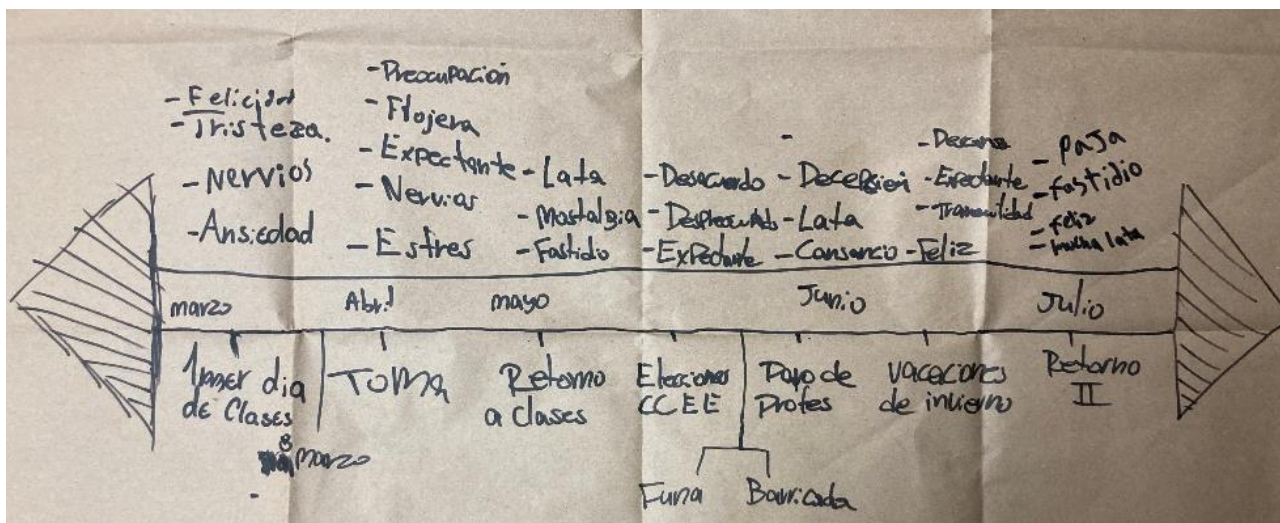 - Felicidad
- Tristeza.
- Nervios
- Ansiedad
- Preocupación
- Flojera
- Expectante
- Nervios
- Estres
- Lata
- Nostalgia
- Fastidio
- Desacuerdo
- Expectante
-
- Decepsion
- Lata
- Cansancio
- Expectante
- Tranquilidad
- Feliz
- Paja
- fastidio
- feliz
- mucha lata
marzo
Abril
mayo
Junio
Julio
Primer dia
de Clases
8
marzo
-
TOMA
Retorno
a clases
Elecciones
CCEE
Funa
Barricada
Paro de
Profes
vacaciones
de invierno
Retorno
II